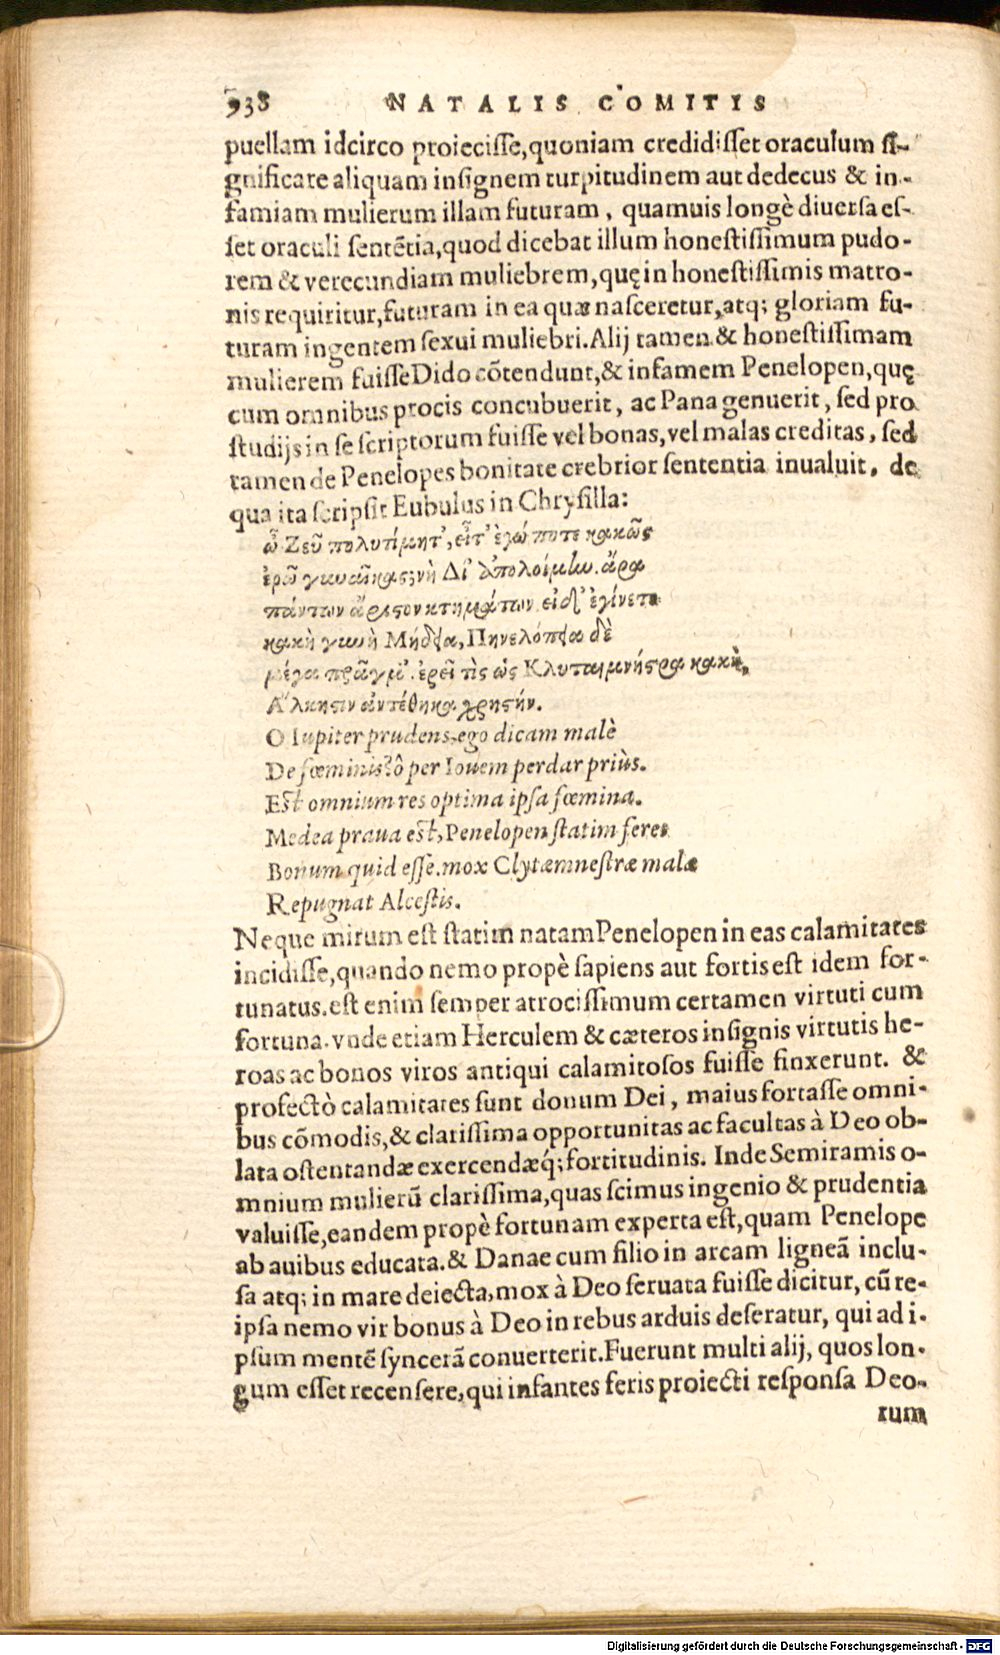 938 NATALIS COMITIS
puellam idcirco proiecisse, quoniam credidisset oraculum si-
gnificare aliquam insignem turpitudinem aut dedecus & in-
famiam mulierum illam futuram, quamuis longè diuersa es-
set oraculi sentẽtia, quod dicebat illum honestissimum pudo-
rem & verecundiam muliebrem, quę in honestissimis matro-
nis requiritur, futuram in ea quæ nasceretur, atq; gloriam fu-
turam ingentem sexui muliebri. Alij tamen & honestissimam
mulierem fuisse Dido cõtendunt, & infamem Penelopen, quę
cum omnibus procis concubuerit, ac Pana genuerit, sed pro
studijs in se scriptorum fuisse vel bonas, vel malas creditas, sed
tamen de Penelopes bonitate crebrior sententia inualuit, de
qua ita scripsit Eubulus in Chrysilla:
ὦ Ζεῦ πολυτίμητ', εἶτ' ἐγώ ποτε κακῶς
ἐρῶ γυναῖκας; νὴ Δί' ἀπολοίμην. ἄρα
πάντων ἄριστον κτημάτων. εἰ δ' ἐγίνετο
κακὴ γυνὴ Μήδεια, Πηνελόπεια δὲ
μέγα πρᾶγμ'. ἐρεῖ τὶς ὡς Κλυταιμνήστρα κακὴ,
Α῎λκηστιν ἀντέθηκα χρηστήν.
O Iupiter prudens, ego dicam malè
De fœminis? ô per Iouem perdar priùs.
Est omnium res optima ipsa fœmina.
Medea praua est, Penelopen statim feres
Bonum quid esse. mox Clytæmnestræ malæ
Repugnat Alcestis.
Neque mirum est statim natam Penelopen in eas calamitates
incidisse, quando nemo propè sapiens aut fortis est idem for-
tunatus. est enim semper atrocissimum certamen virtuti cum
fortuna. vnde etiam Herculem & cæteros insignis virtutis he-
roas ac bonos viros antiqui calamitosos fuisse finxerunt. &
profectò calamitates sunt donum Dei, maius fortasse omni-
bus cõmodis, & clarissima opportunitas ac facultas à Deo ob-
lata ostentandæ exercendæq́; fortitudinis. Inde Semiramis o-
mnium mulierũ clarissima, quas scimus ingenio & prudentia
valuisse, eandem propè fortunam experta est, quam Penelope
ab auibus educata. & Danae cum filio in arcam ligneã inclu-
sa atq; in mare deiecta, mox à Deo seruata fuisse dicitur, cũ re-
ipsa nemo vir bonus à Deo in rebus arduis deseratur, qui ad i-
psum mentẽ syncerã conuerterit. Fuerunt multi alij, quos lon-
gum esset recensere, qui infantes feris proiecti responsa Deo-
rum
Digitalisierung gefördert durch die Deutsche Forschungsgemeinschaft - DFG